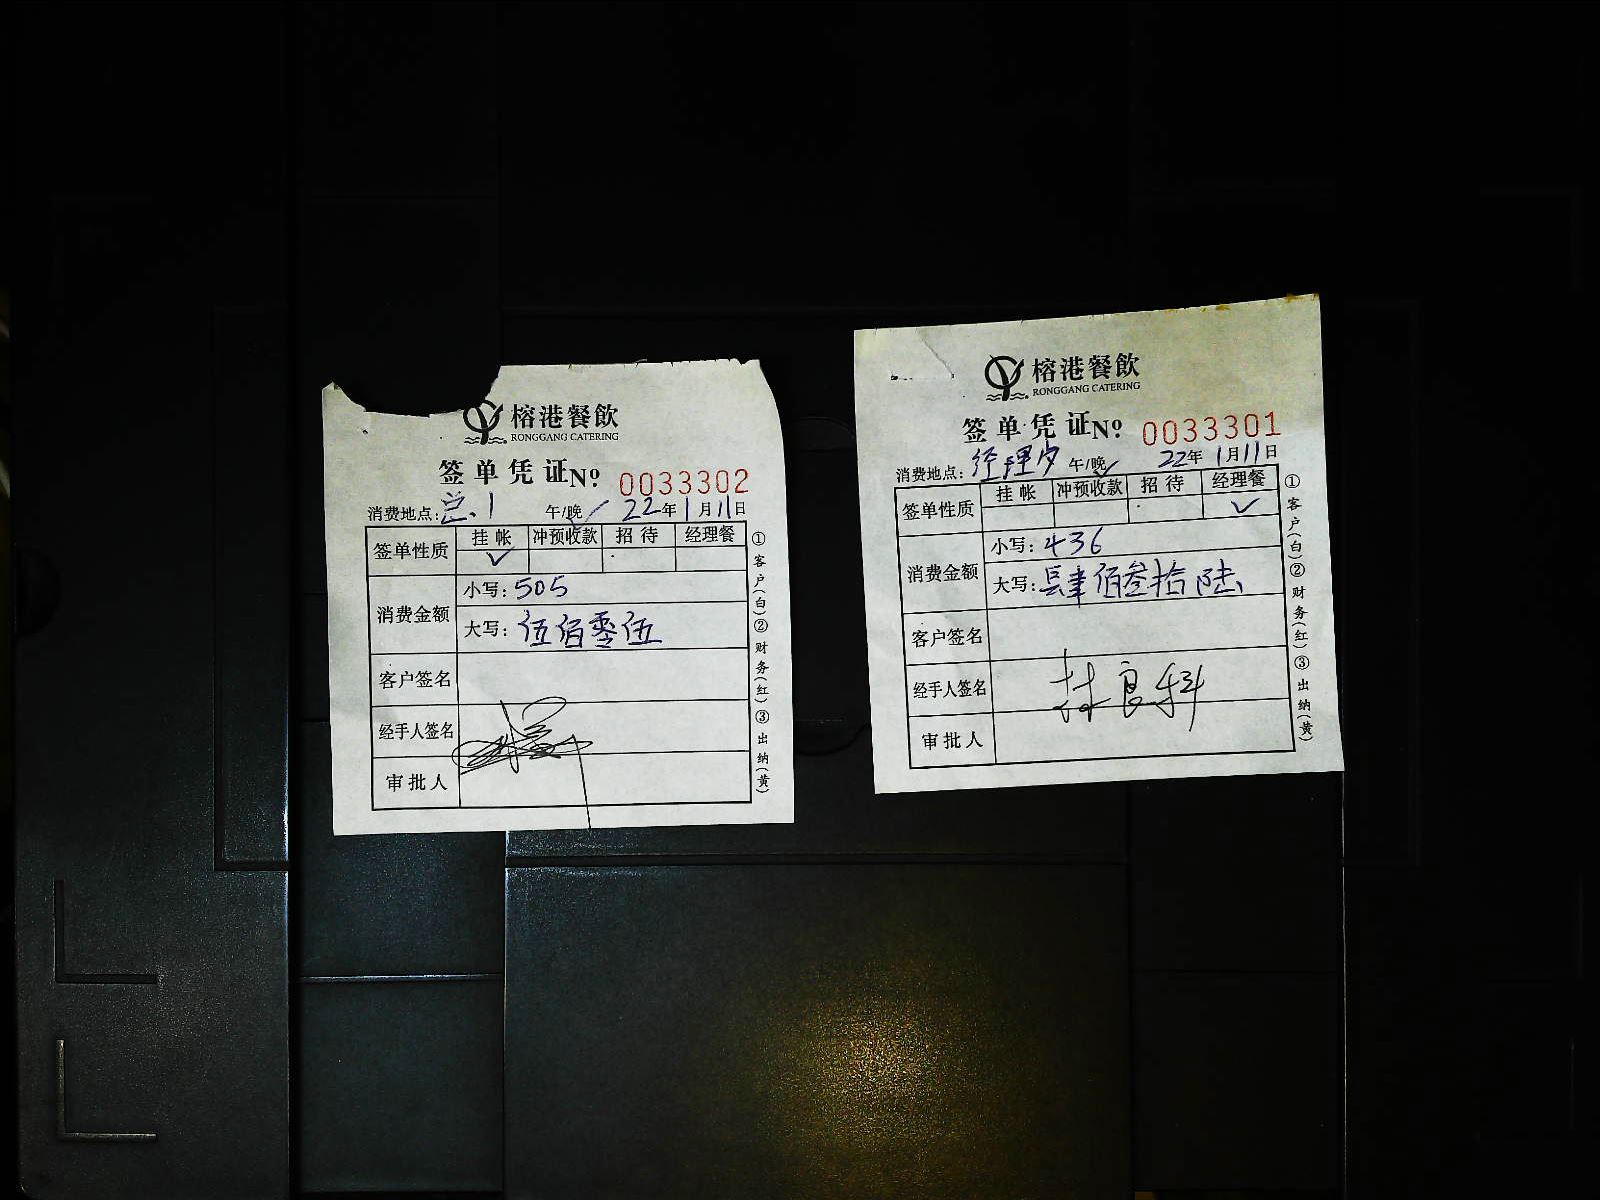 榕港餐飲
RONGGANG CATERING
签单凭证 Nº 0033302
消费地点: 总.1 午/晚 ✓ 22年1月11日
签单性质 挂帐 冲预收款 招待 经理餐
✓
消费金额
小写: 505
大写: 伍佰零伍
客户签名
经手人签名
审批人
①客户(白)②财务(红)③出纳(黄)
榕港餐飲
RONGGANG CATERING
签单凭证 Nº 0033301
消费地点: 经理 午/晚 ✓ 22年1月11日
签单性质 挂帐 冲预收款 招待 经理餐
✓
消费金额
小写: 436
大写: 肆佰叁拾陆
客户签名
经手人签名 林良科
审批人
①客户(白)②财务(红)③出纳(黄)